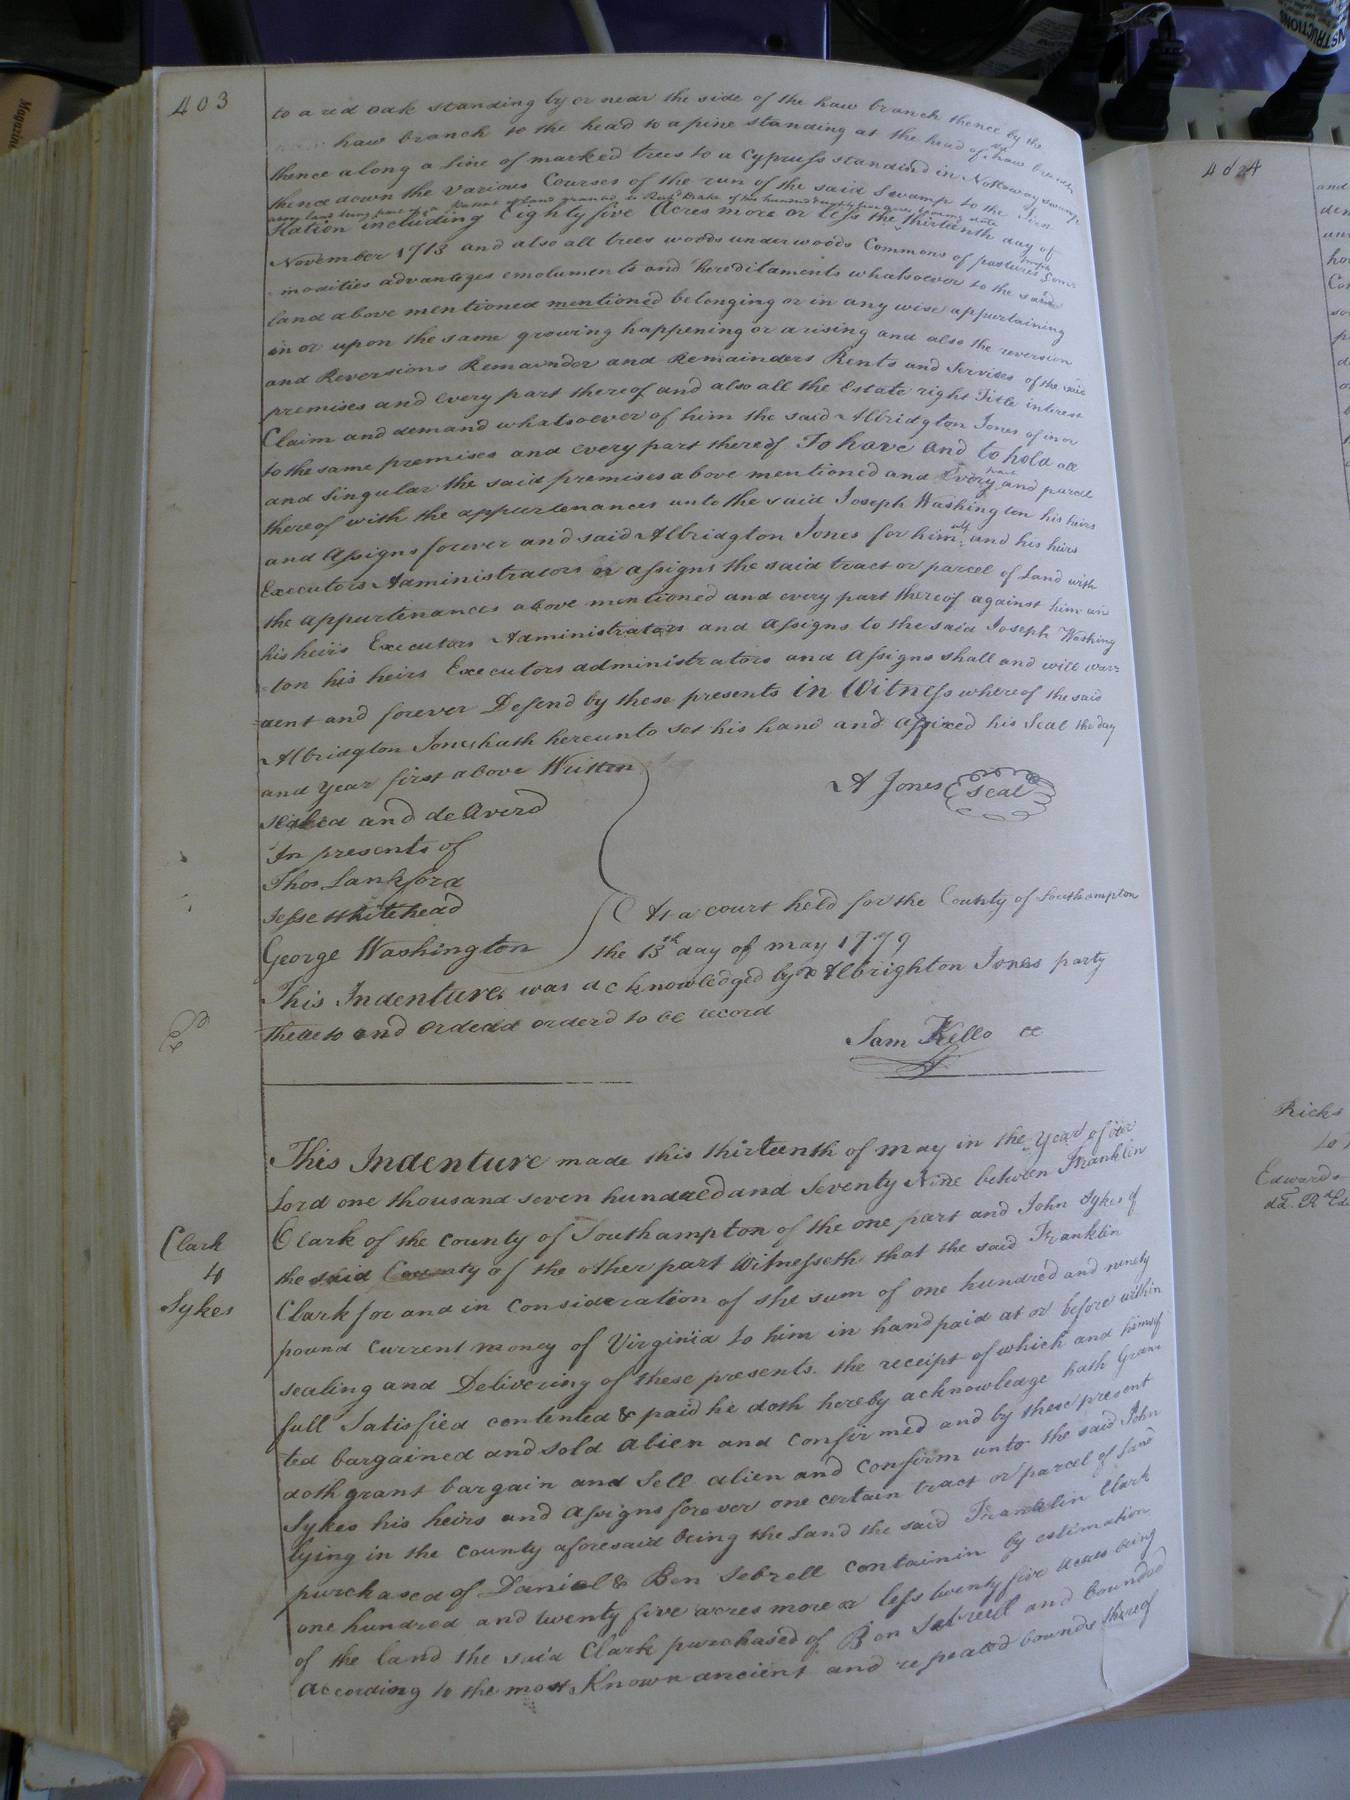 403
to a red oak standing by or near the side of the haw branch thence by the
haw branch to the head to a pine standing at the head of the haw branch
thence along a line of marked trees to a Cypruss standind in Nottoway swamp
thence down the various Courses of the run of the said Swamp to the first
arny land being part of a Patent of land granted to Richd Drake of two hundred & eighty five acres bearing date
Station including Eighty five Acres more or less the thirteenth day of
November 1713 and also all trees woods underwoods Commons of pastures profits Com=
=modities advanteges emoluments and hereditaments whatsoever to the said
land above mentioned mentioned belonging or in any wise appurtaining
in or upon the same growing happening or arising and also the reversion
and Reversions Remainder and Remainders Rents and Services of the said
premises and every part thereof and also all the Estate right Title interest
Claim and demand whatsoever of him the said Albridgton Jones of in or
to the same premises and every part thereof To have and to hold all
and Singular the said premises above mentioned and Every part and parcel
thereof with the appurtenances unto the said Joseph Washington his heirs
and Assigns forever and said Albridgton Jones for himself and his heirs
Executors Administrators or assigns the said tract or parcel of Land with
the appurtenances above mentioned and every part thereof against him an
his heirs Executors Administrators and Assigns to the said Joseph Washing
-ton his heirs Executors administrators and Assigns shall and will warr=
=aent and forever Defend by these presents in Witness whereof the said
Albridgton Jones hath hereunto set his hand and affixed his Seal the day
and Year first above Written
A Jones Seal
sealed and deliverd
In presents of
Thos Lankford
Jesse Whitehead
George Washington
At a court held for the County of Southampton
the 13th day of may 1779
This Indenture was acknowledged by Albrighton Jones party
thereto and orderd to be record
Sam Kello CC
Clark
to
Sykes
This Indenture made this thirteenth of may in the Year of our
Lord one thousand seven hundred and Seventy Nine between Franklin
Clark of the County of Southampton of the one part and John Sykes of
the said County of the other part Witnesseth that the said Franklin
Clark for and in consideration of the sum of one hundred and ninety
pound Current money of Virginia to him in hand paid at or before within
sealing and Delivering of these presents. the receipt of which and himself
full Satisfied contented & paid he doth hereby acknowledge hath Gran
ted bargained and sold alien and confirmed and by these present
doth grant bargain and Sell alien and confirm unto the said John
Sykes his heirs and Assigns forever one certain tract or parcel of land
lying in the County aforesaid being the Land the said Franklin Clark
purchased of Daniel & Ben Sebrell containin by estimation
one hundred and twenty five acres more or less twenty five acres being
of the land the said Clark purchased of Ben Sebrell and bounded
According to the most Known ancient and repeated bounds thereof
404
and
Ricks
to
Edwards